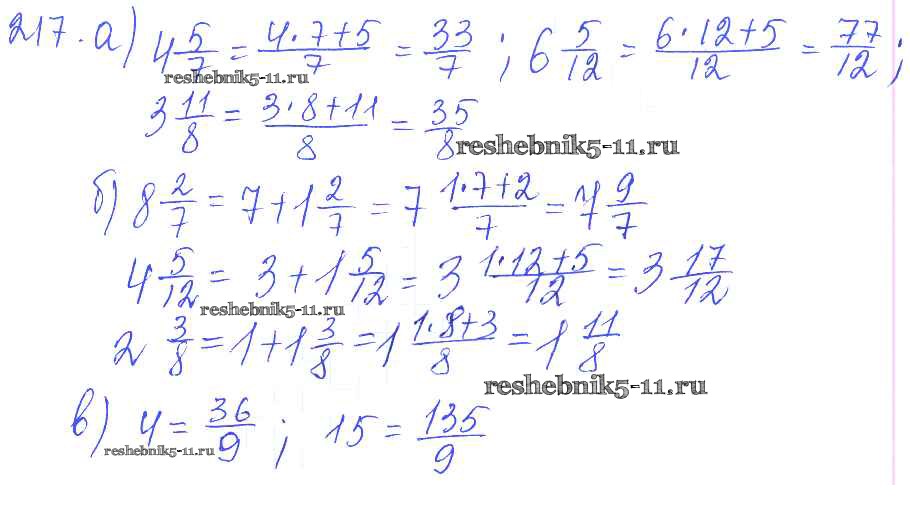 217. а) 4 5/7 = (4·7+5)/7 = 33/7 ; 6 5/12 = (6·12+5)/12 = 77/12 ;
reshebnik5-11.ru
3 11/8 = (3·8+11)/8 = 35/8
reshebnik5-11.ru
б) 8 2/7 = 7+1 2/7 = 7 (1·7+2)/7 = 7 9/7
4 5/12 = 3+1 5/12 = 3 (1·12+5)/12 = 3 17/12
reshebnik5-11.ru
2 3/8 = 1+1 3/8 = 1 (1·8+3)/8 = 1 11/8
reshebnik5-11.ru
в) 4 = 36/9 ; 15 = 135/9
reshebnik5-11.ru